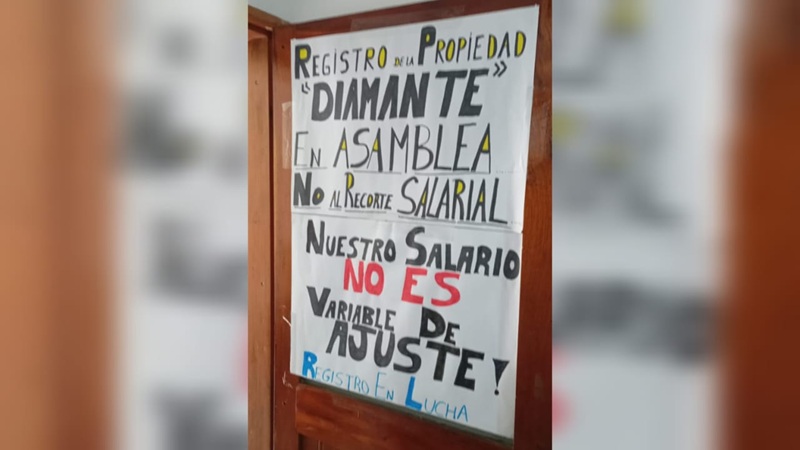 REGISTRO DE LA PROPIEDAD
"DIAMANTE"
EN ASAMBLEA
NO AL RECORTE SALARIAL
NUESTRO SALARIO
NO ES
VARIABLE DE
AJUSTE!
REGISTRO EN LUCHA